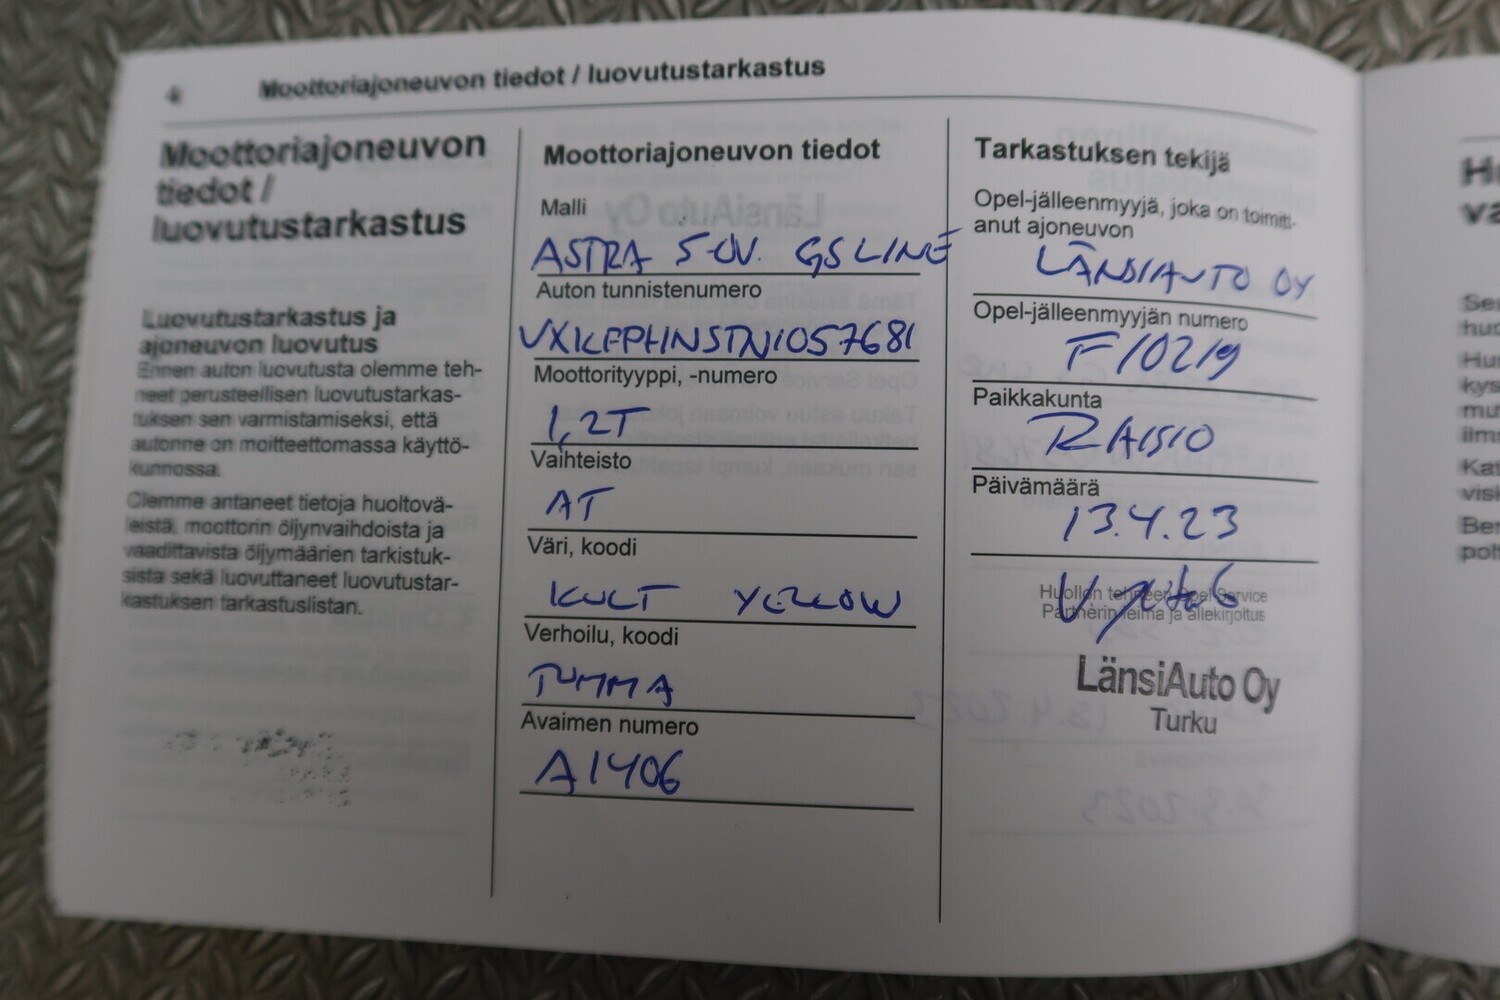 4 Moottoriajoneuvon tiedot / luovutustarkastus
Moottoriajoneuvon
tiedot /
luovutustarkastus
Luovutustarkastus ja
ajoneuvon luovutus
Ennen auton luovutusta olemme teh-
neet perusteellisen luovutustarkas-
tuksen sen varmistamiseksi, että
autonne on moitteettomassa käyttö-
kunnossa.
Olemme antaneet tietoja huoltovä-
leistä, moottorin öljynvaihdoista ja
vaadittavista öljymäärien tarkistuk-
sista sekä luovuttaneet luovutustar-
kastuksen tarkastuslistan.
Moottoriajoneuvon tiedot
Malli
ASTRA 5-OV. GS LINE
Auton tunnistenumero
VXKFPHNSTN1057681
Moottorityyppi, -numero
1,2T
Vaihteisto
AT
Väri, koodi
KULT YELLOW
Verhoilu, koodi
TUMMA
Avaimen numero
A1406
Tarkastuksen tekijä
Opel-jälleenmyyjä, joka on toimitt-
anut ajoneuvon
LÄNSIAUTO OY
Opel-jälleenmyyjän numero
F10219
Paikkakunta
RAISIO
Päivämäärä
13.4.23
Huollon tehneen Opel Service
Partnerin leima ja allekirjoitus
LänsiAuto Oy
Turku